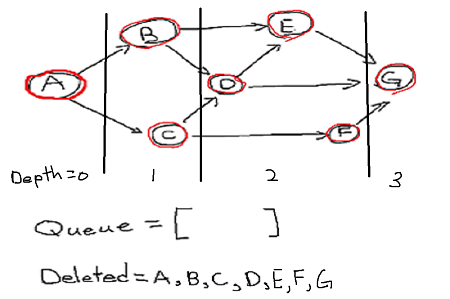 B E
A D G
C F
Depth=0 1 2 3
Queue = [ ]
Deleted = A, B, C, D, E, F, G